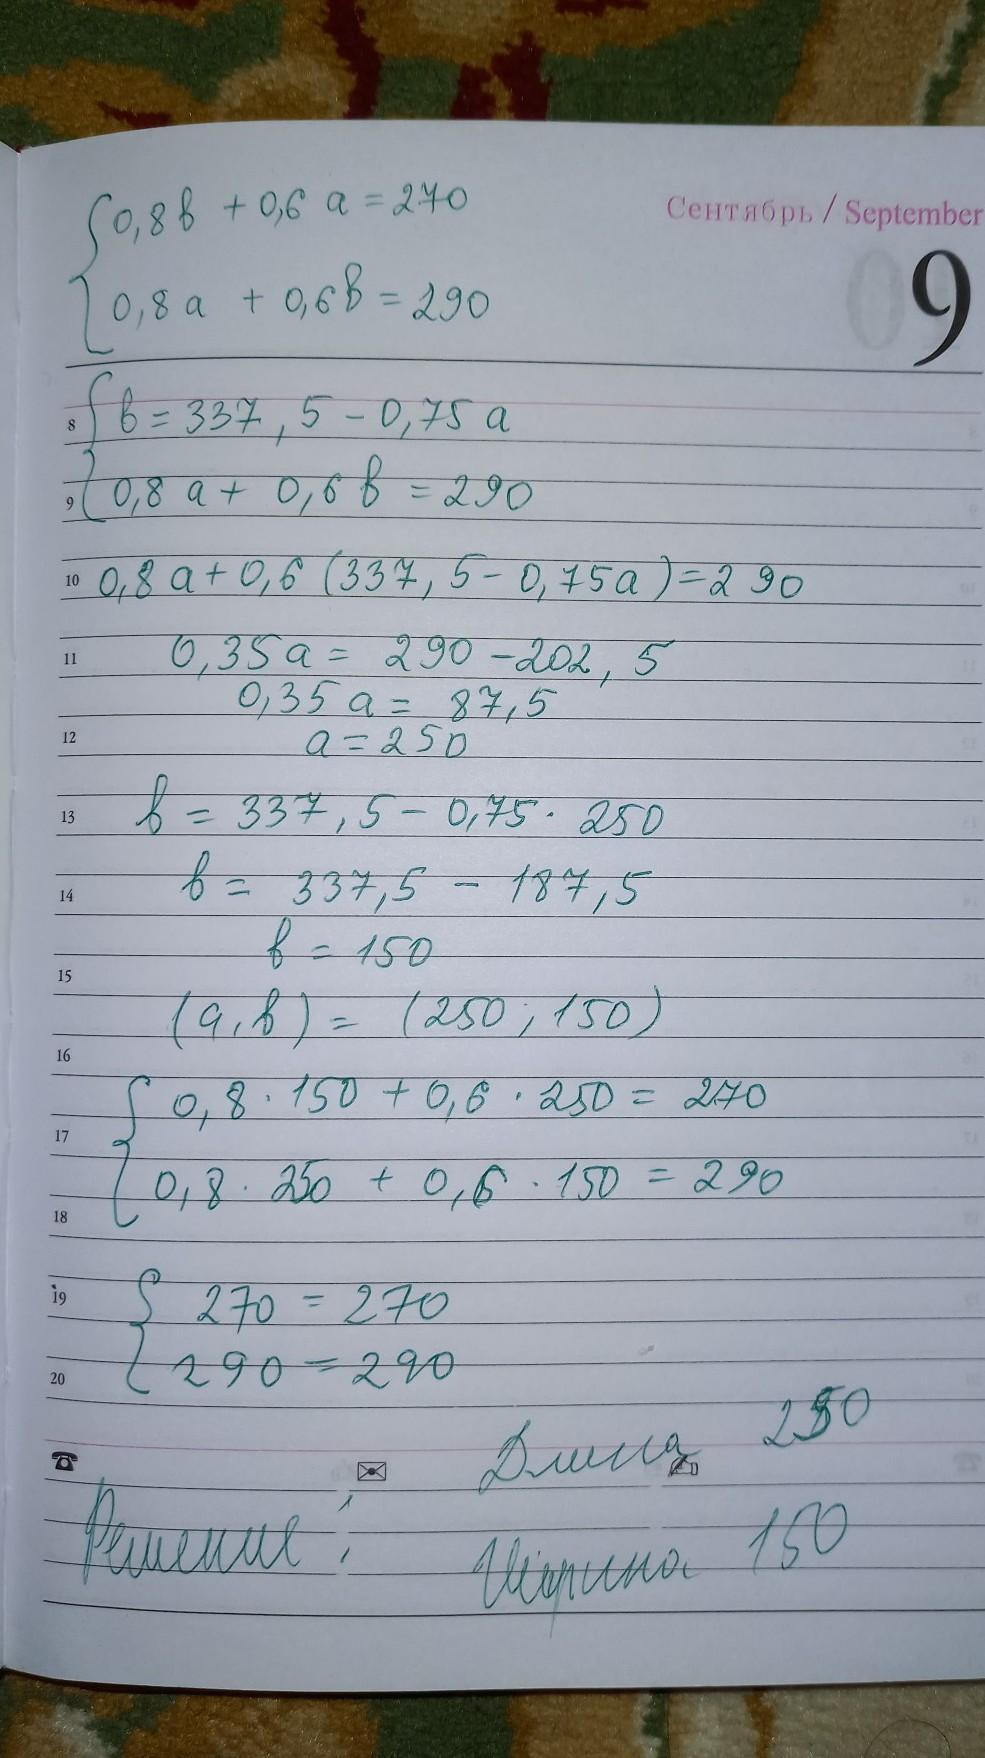 Сентябрь / September
09
{ 0,8в + 0,6 а = 270
0,8 а + 0,6в = 290
8 { в = 337,5 - 0,75 а
9 0,8 а + 0,6 в = 290
10 0,8 а + 0,6 (337,5 - 0,75а) = 290
11 0,35 а = 290 - 202,5
0,35 а = 87,5
12 а = 250
13 в = 337,5 - 0,75 · 250
14 в = 337,5 - 187,5
в = 150
15
(а, в) = (250; 150)
16
{ 0,8 · 150 + 0,6 · 250 = 270
17
0,8 · 250 + 0,6 · 150 = 290
18
19 { 270 = 270
20 290 = 290
Длина 250
Решение: Ширина 150